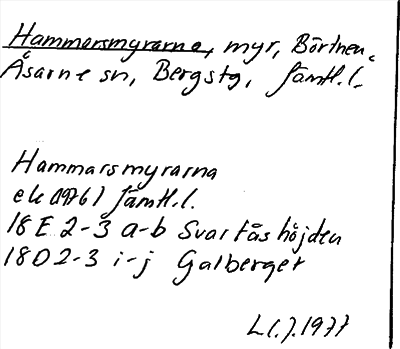 Hammarsmyrarna, myr, Börtnen.
Åsarne sn, Bergs tg, Jämtl.l.
Hammarsmyrarna
ek (1976) Jämtl.l.
18E 2-3 a-b Svartåshöjden
18D 2-3 i-j Galberget
1977